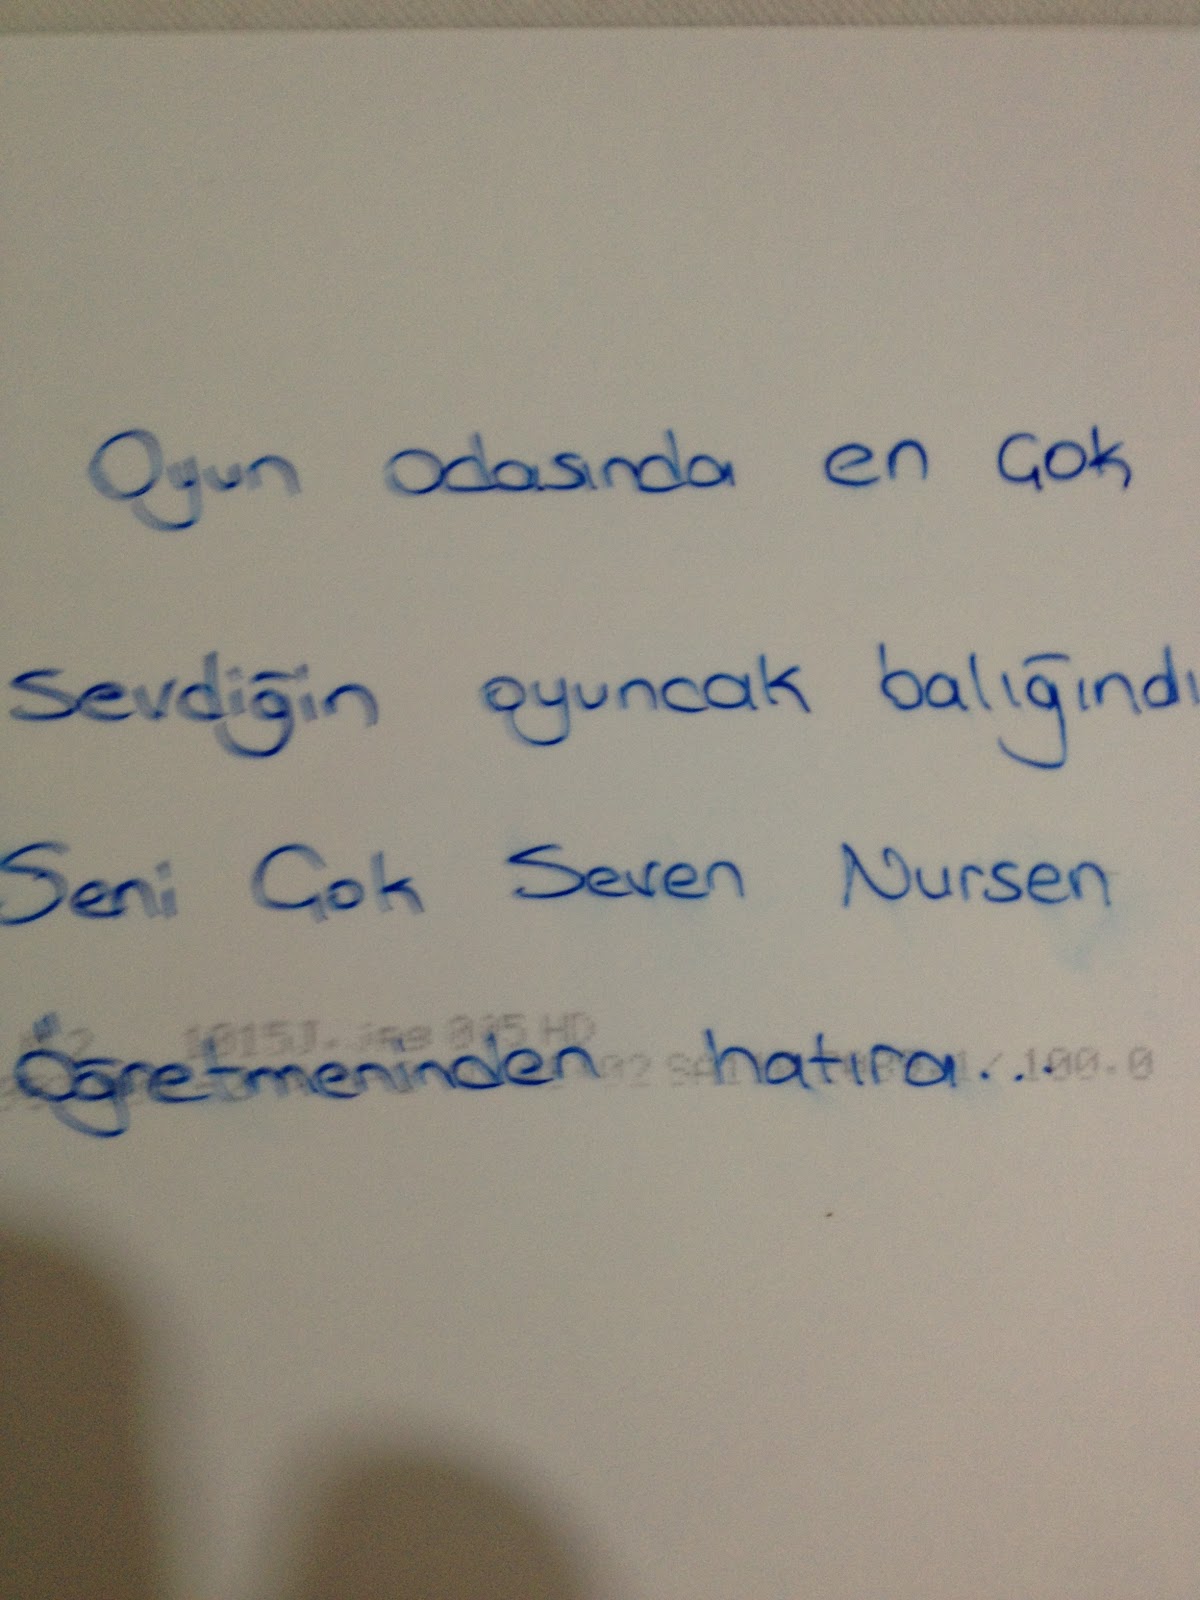 Oyun odasında en çok
Sevdiğin oyuncak balığındı
Seni Çok Seven Nursen
1015J. 005 HD
Öğretmeninden hatıra...
100.0